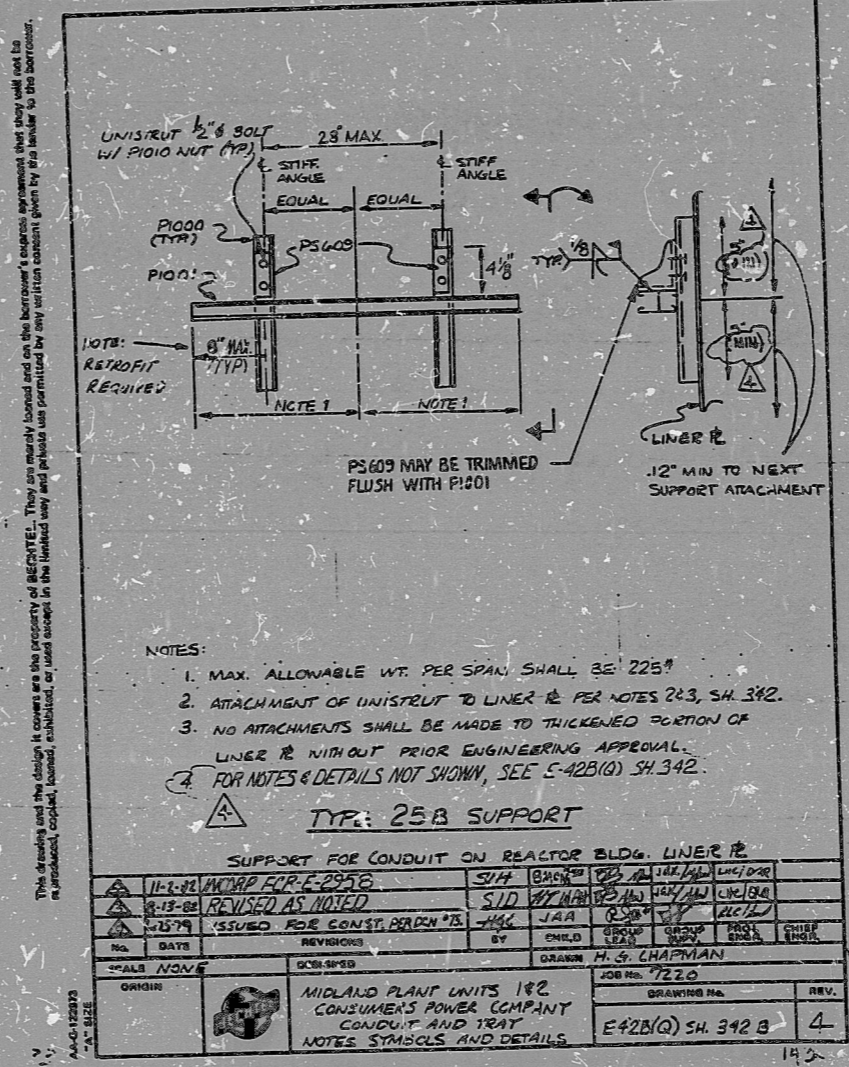 This drawing and the design it covers are the property of BECHTEL. They are merely loaned and on the borrower's express agreement that they will not be
reproduced, copied, loaned, exhibited, or used except in the limited way and private use permitted by any written consent given by the lender to the borrower.
UNISTRUT 1/2"ϕ BOLT
W/ P1010 NUT (TYP)
28" MAX
℄ STIFF
ANGLE
℄ STIFF
ANGLE
EQUAL
EQUAL
P1000
(TYP)
PS609
4 1/8"
P1001
NOTE:
RETROFIT
REQUIRED
9" MAX
(TYP)
NOTE 1
NOTE 1
TYP
1/8
4
5"
MIN
5"
MIN
4
LINER ⅊
PS609 MAY BE TRIMMED
FLUSH WITH P1001
12" MIN TO NEXT
SUPPORT ATTACHMENT
NOTES:
1. MAX. ALLOWABLE WT. PER SPAN SHALL BE 225#
2. ATTACHMENT OF UNISTRUT TO LINER ⅊ PER NOTES 2&3, SH. 342.
3. NO ATTACHMENTS SHALL BE MADE TO THICKENED PORTION OF
LINER ⅊ WITHOUT PRIOR ENGINEERING APPROVAL.
4. FOR NOTES & DETAILS NOT SHOWN, SEE E-42B(Q) SH. 342.
4
TYPE 25B SUPPORT
SUPPORT FOR CONDUIT ON REACTOR BLDG. LINER ⅊
11-2-82 INCORP FCR-E-2958 SJH
REVISED AS NOTED SJD
ISSUED FOR CONST. PER DCN #75. HGC JAA
No. DATE REVISIONS BY CHK'D GROUP LEAD GROUP SUPV. PROJ. ENGR. CHIEF ENGR.
SCALE NONE DESIGNED DRAWN H. G. CHAPMAN
ORIGIN
MIDLAND PLANT UNITS 1&2
CONSUMER'S POWER COMPANY
CONDUIT AND TRAY
NOTES SYMBOLS AND DETAILS
JOB No. 7220
DRAWING No. REV.
E42B(Q) SH. 342 B 4
"A" SIZE